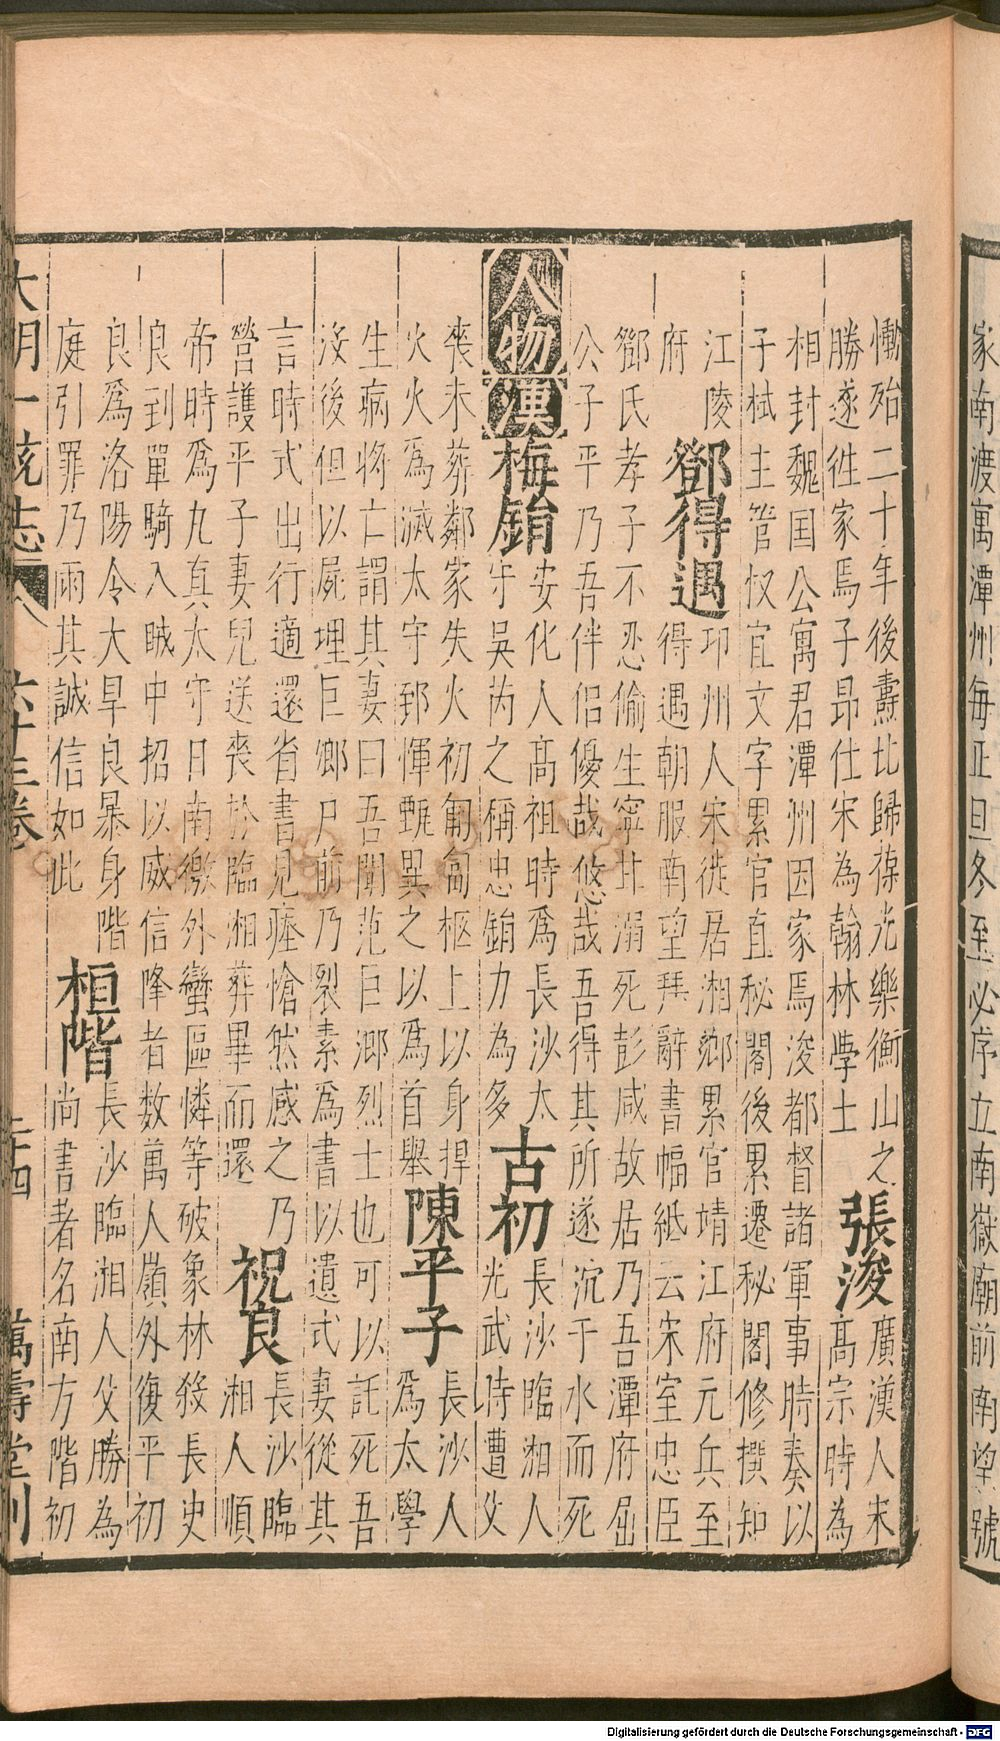 家南渡寓潭州每正旦冬至必序立南嶽廟前南望號
慟殆二十年後燾比歸葆光樂衡山之
勝遂徃家焉子昂仕宋為翰林學士
張浚
廣漢人宋
高宗時為
相封魏国公寓君潭州因家焉浚都督諸軍事時奏以
子栻主管杈宜文字累官直秘閣後累遷秘閣修撰知
江陵
府
鄧得遇
卭州人宋徙居湘鄉累官靖江府元兵至
得遇朝服南望拜辭書幅紙云宋室忠臣
鄧氏孝子不忍偷生寧甘溺死彭咸故居乃吾潭府屈
公子平乃吾伴侶優哉悠哉吾得其所遂沉于水而死
人物
漢
梅鋗
安化人高祖時爲長沙太
守吳芮之稱忠鋗力為多
古初
長沙臨湘人
光武時遭父
喪未葬鄰家失火初匍匐柩上以身捍
火火爲滅太守郅惲甄異之以爲首舉
陳平子
長沙人
爲太學
生病將亡謂其妻曰吾聞范巨鄉烈士也可以託死吾
沒後但以屍埋巨鄉户前乃裂素爲書以遺式妻從其
言時式出行適還省書見瘞愴然感之乃
營護平子妻兒送喪於臨湘葬畢而還
祝良
長沙臨
湘人順
帝時爲九真太守日南徼外蠻區憐等破象林殺長史
良到單騎入賊中招以威信降者数萬人嶺外復平初
良爲洛陽令大旱良暴身階
庭引罪乃雨其誠信如此
桓階
長沙臨湘人父勝為
尚書著名南方階初
大明一統志 六十三卷 二十四 萬壽堂刊
Digitalisierung gefördert durch die Deutsche Forschungsgemeinschaft - DFG